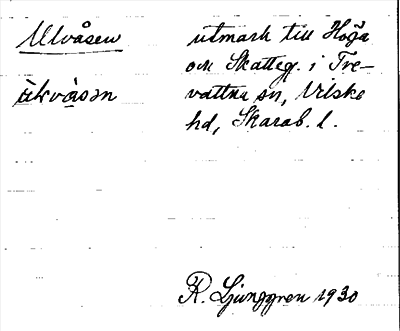 Ulvåsen utmark till Höga
och Skatteg. i Tre-
vattna sn, Vilske
hd, Skarab. l.
R. Ljunggren 1930